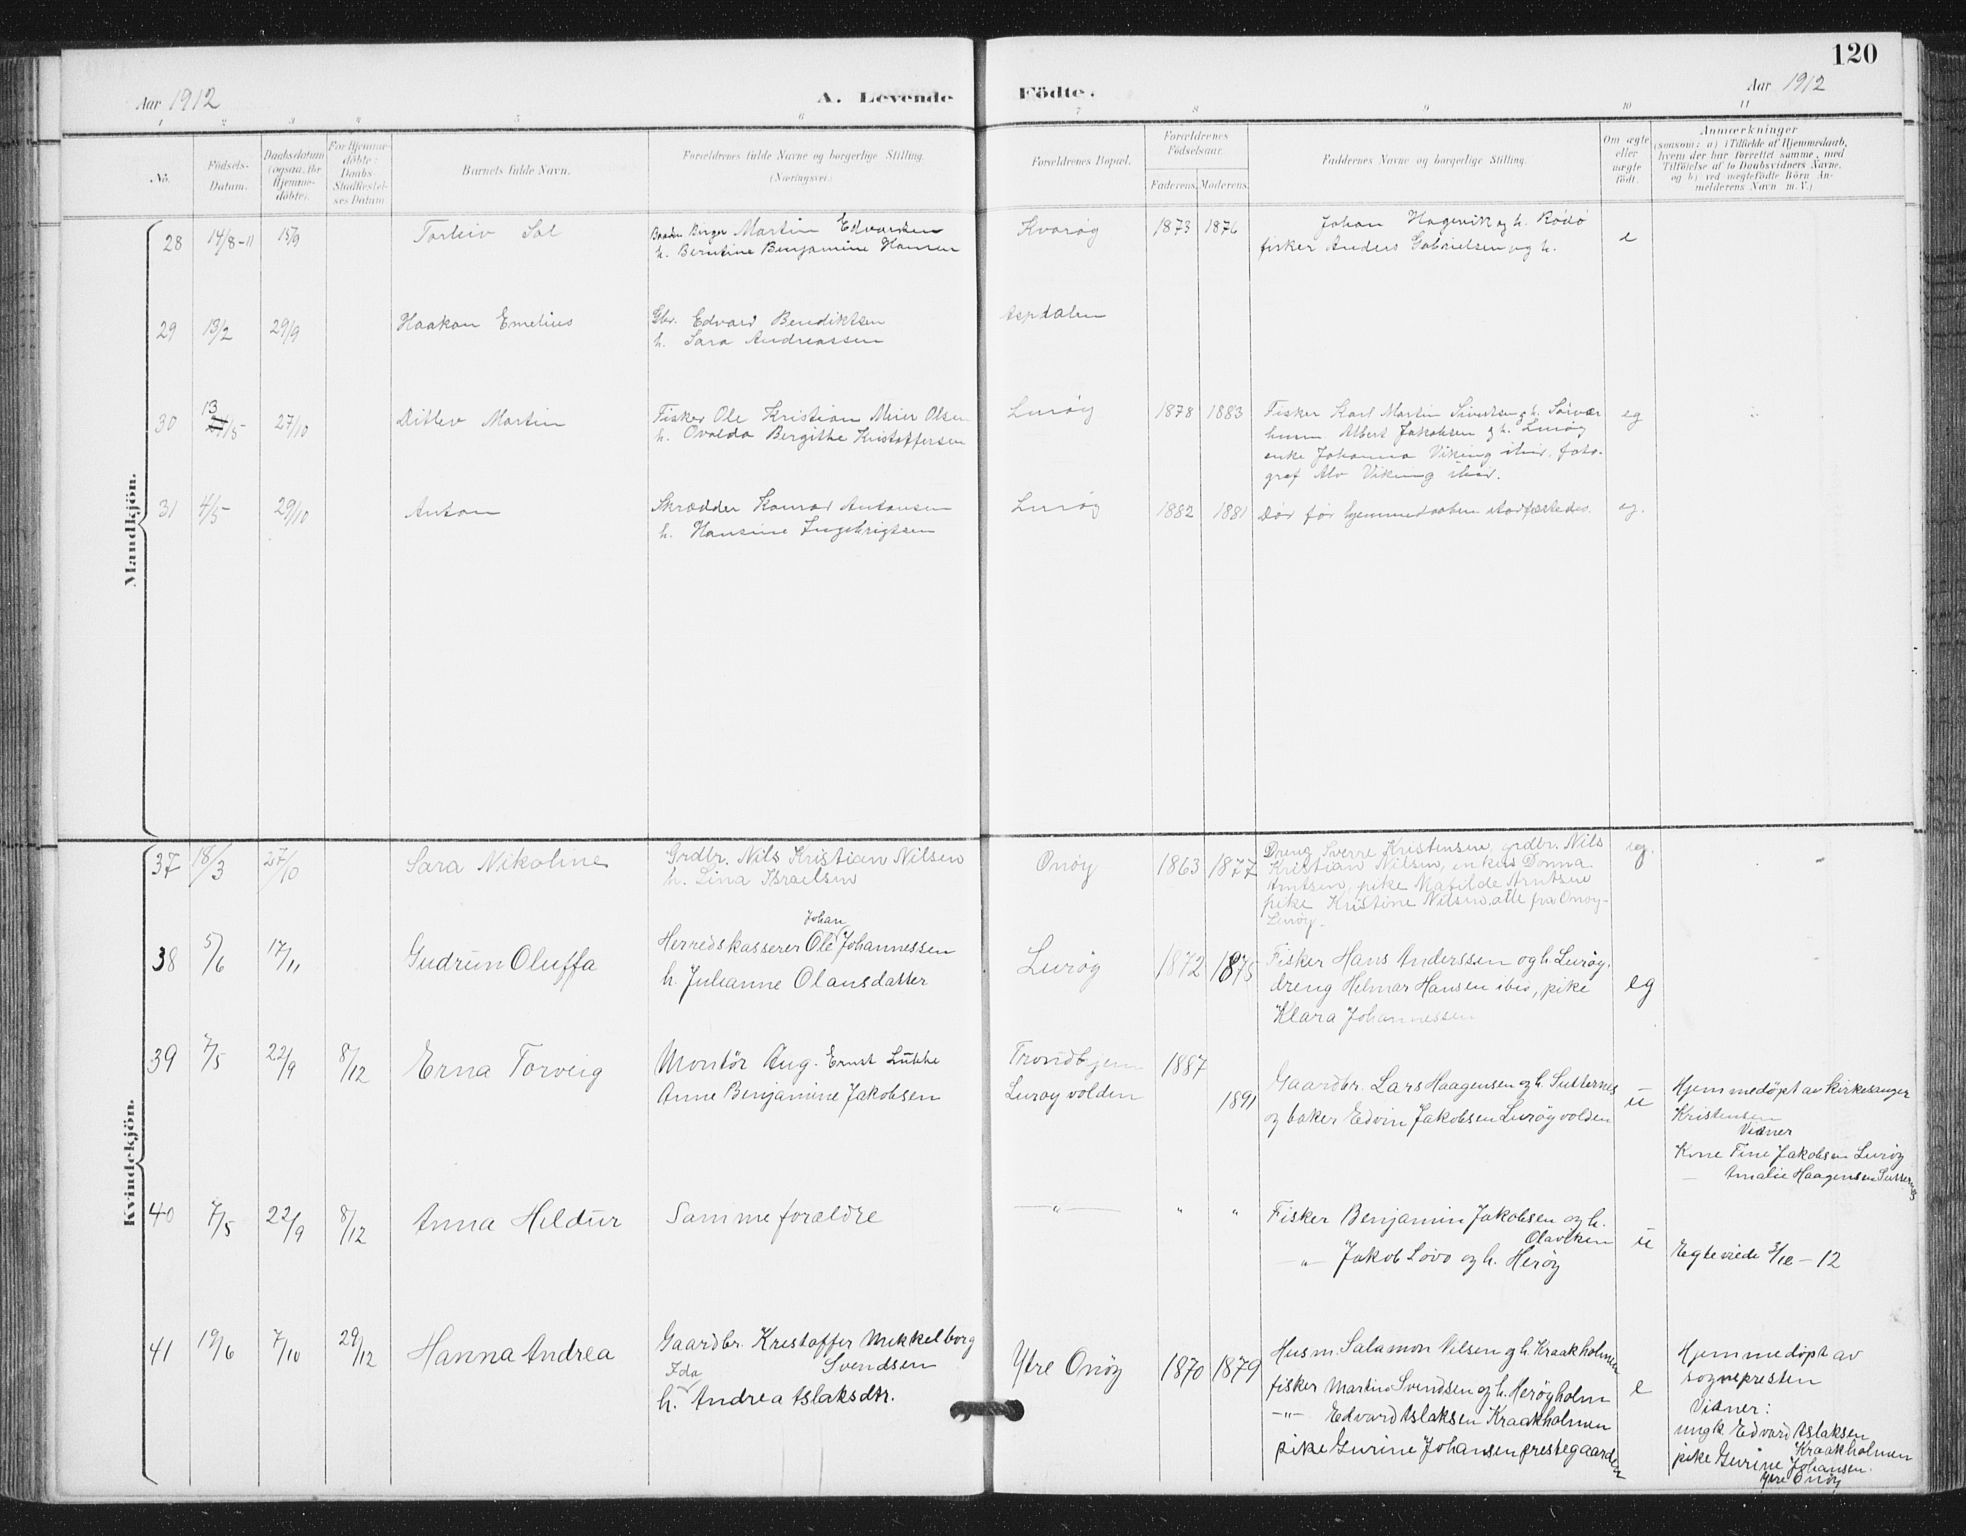 120
Aar 1912
A. Levende Födte.
Aar 1912
1 2 3 4 5 6 7 8 9 10 11
No. Födsels-Datum. Daabsdatum (ogsaa for Hjemme-döbte). For Hjemme-döbte: Daabs-Stadfæstel-ses Datum Barnets fulde Navn. Forældrenes fulde Navne og borgerlige Stilling. (Næringsvei.) Forældrenes Bopæl. Forældrenes Födselsaar. Faderens. Moderens. Faddernes Navne og borgerlige Stilling. Om ægte eller uægte födt.
Anmærkninger
(saasom: a) i Tilfælde af Hjemmedaab,
hvem der har forrettet samme, med
Tilföielse af to Daabsvidners Navne,
og b) ved uægtefödte Börn An-
melderens Navn m. V.)
Mandkjön.
28 14/8-11 15/9 Torleiv Sol Birger Martin Edvardsen Kvarøy 1873 1876 Johan Hagevik og h. Rødø e
h. Berntine Benjamine Hansen fisker Anders Gabrielsen og h.
29 13/2 29/9 Haakon Emelius Gbr. Edvard Bendiktsen Aspdalen
h. Sara Andreassen
30 13/5 27/10 Ditlev Martin Fisker Ole Kristian Meier Olsen Lurøy 1878 1883 Fisker Karl Martin Sivertsen og h. Sørvær eg
h. Ovalda Bergithe Kristoffersen husm. Albert Jakobsen og h. Lurøy
enke Johanna Viking ibid. foto-
graf Alv Viking ibid.
31 4/5 29/10 Anton Skrædder Konrad Antonsen Lurøy 1882 1881 Død før hjemmedaaben stadfæstedes. eg.
h. Hansine Ingebrigtsen
Kvindekjön.
37 18/3 27/10 Sara Nikoline Grdbr. Nils Kristian Nilsen Onøy 1863 1877 Dreng Sverre Kristensen, grdbr. Nils eg.
h. Lina Israelsen Kristian Nilsen, enken Donna
Arntsen, pike Matilde Arntsen
pike Kristine Nilsen, alle fra Onøy-
Lurøy.
Johan
38 5/6 17/11 Gudrun Oluffa Herredskasserer Ole Johannessen Lurøy 1872 1875 Fisker Hans Anderssen og h. Lurøy, eg
h. Julianne Olausdatter dreng Helmar Hansen ibid, pike
Klara Johannessen
39 7/5 22/9 8/12 Erna Torveig Montør Aug. Ernst Lübke Trondhjem 1887 Gaardbr. Lars Haagensen og h. Sutternes u Hjemmedøpt av kirkesanger
Anne Benjamine Jakobsen Lurøyvolden 1891 og baker Edvin Jakobsen Lurøyvolden Kristensen
Vidner
Kone Fine Jakobsen Lurøy
— Amalie Haagensen Sutternes
40 7/5 22/9 8/12 Anna Hildur Samme forældre — " — " " Fisker Benjamin Jakobsen og h. u
Olaviken
— " — Jakob Lovo og h. Herøy Egteviede 3/12 - 12
41 19/6 7/10 29/12 Hanna Andrea Gaardbr. Kristoffer Mikkelborg Ytre Onøy 1870 1879 Husm. Salamon Nilsen og h. Kraakholmen e Hjemmedøpt av
Svendsen fisker Martin Svendsen og h. Herøyholm sognepresten
Ida
h. Andrea Aslaksdtr. — " — Edvard Aslaksen Kraakholmen Vidner:
pike Gurine Johansen prestegaarden ungk. Edvard Aslaksen
Kraakholmen
pike Gurine Johansen.
Ytre Onøy